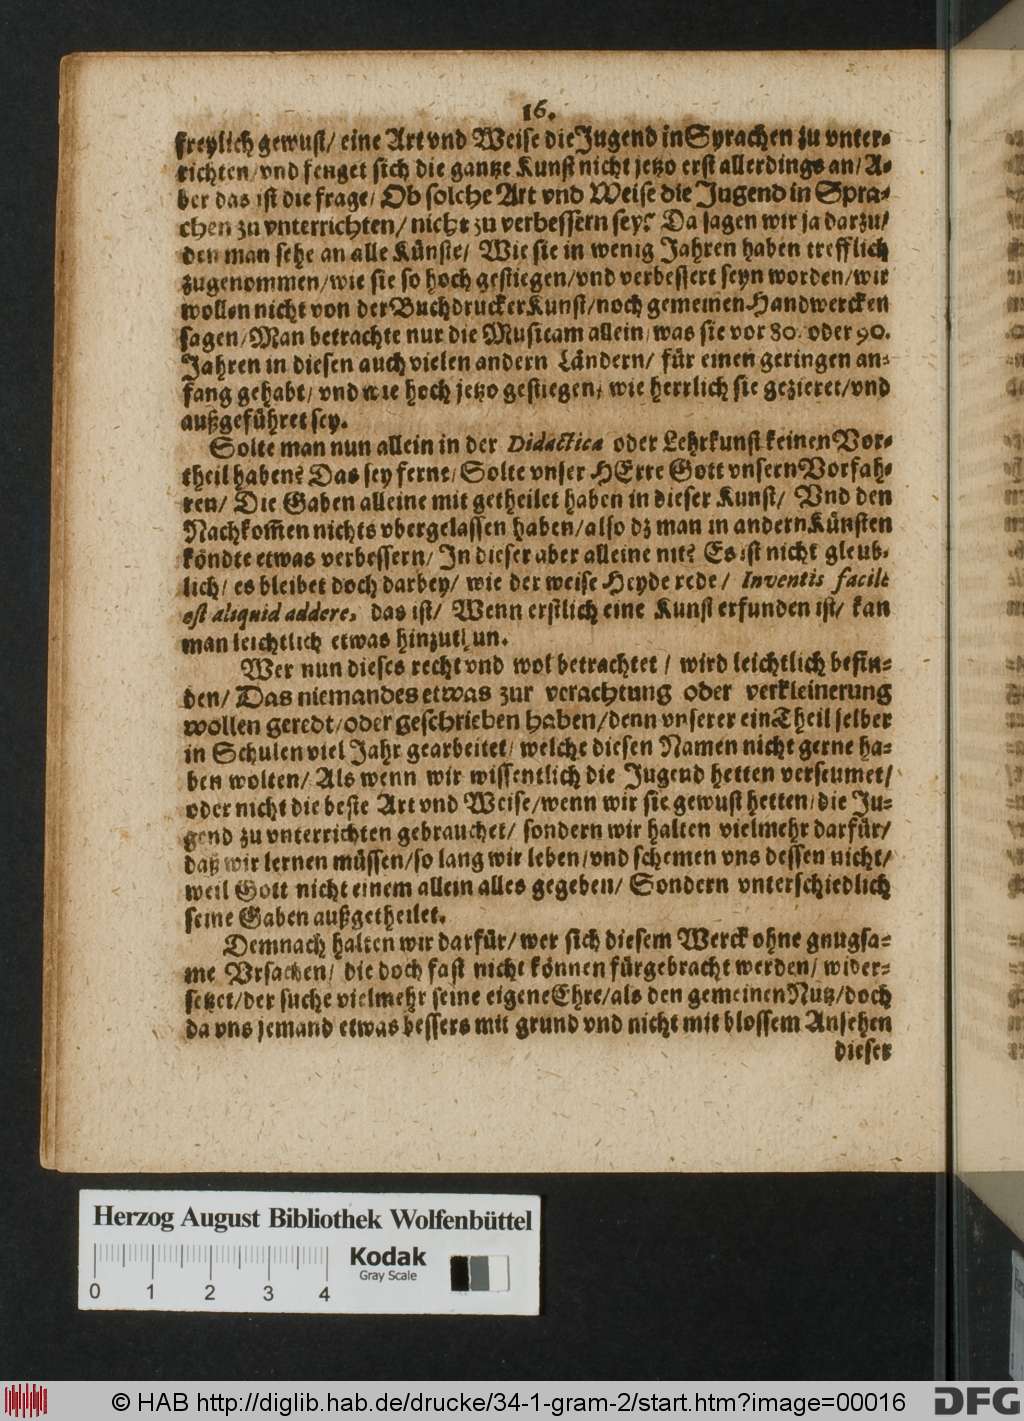 16.
freylich gewust/ eine Art vnd Weise die Jugend in Sprachen zu vnter-
richten/ vnd fenget sich die gantze Kunst nicht jetzo erst allerdings an/ A-
ber das ist die frage/ Ob solche Art vnd Weise die Jugend in Spra-
chen zu vnterrichten/ nicht zu verbessern sey? Da sagen wir ja darzu/
den man sehe an alle Künste/ Wie sie in wenig Jahren haben trefflich
zugenommen/ wie sie so hoch gestiegen/ vnd verbessert seyn worden/ wir
wollen nicht von der Buchdrucker Kunst/ noch gemeinen Handwercken
sagen/ Man betrachte nur die Musicam allein/ was sie vor 80. oder 90.
Jahren in diesen auch vielen andern Ländern/ für einen geringen an-
fang gehabt/ vnd wie hoch jetzo gestiegen/ wie herrlich sie gezieret/ vnd
außgeführet sey.
Solte man nun allein in der Didactica oder Lehrkunst keinen Vor-
theil haben? Das sey ferne/ Solte vnser HErre Gott vnsern Vorfah-
ren/ Die Gaben alleine mit getheilet haben in dieser Kunst/ Vnd den
Nachkom̃en nichts vbergelassen haben/ also dz man in andern Künsten
köndte etwas verbessern/ In dieser aber alleine nit? Es ist nicht gleub-
lich/ es bleibet doch darbey/ wie der weise Heyde rede/ Inventis facile
est aliquid addere, das ist/ Wenn erstlich eine Kunst erfunden ist/ kan
man leichtlich etwas hinzuthun.
Wer nun dieses recht vnd wol betrachtet/ wird leichtlich befin-
den/ Das niemandes etwas zur verachtung oder verkleinerung
wollen geredt/ oder geschrieben haben/ denn vnserer ein Theil selber
in Schulen viel Jahr gearbeitet/ welche diesen Namen nicht gerne ha-
ben wolten/ Als wenn wir wissentlich die Jugend hetten verseumet/
oder nicht die beste Art vnd Weise/ wenn wir sie gewust hetten/ die Ju-
gend zu vnterrichten gebrauchet/ sondern wir halten vielmehr darfür/
daß wir lernen müssen/ so lang wir leben/ vnd schemen vns dessen nicht/
weil Gott nicht einem allein alles gegeben/ Sondern vnterschiedlich
seine Gaben außgetheilet.
Demnach halten wir darfür/ wer sich diesem Werck ohne gnugsa-
me Vrsachen/ die doch fast nicht können fürgebracht werden/ wider-
setzet/ der suche vielmehr seine eigene Ehre/ als den gemeinen Nutz/ doch
da vns jemand etwas bessers mit grund vnd nicht mit blossem Ansehen
dieser
Herzog August Bibliothek Wolfenbüttel
Kodak
Gray Scale
0 1 2 3 4
© HAB http://diglib.hab.de/drucke/34-1-gram-2/start.htm?image=00016
DFG